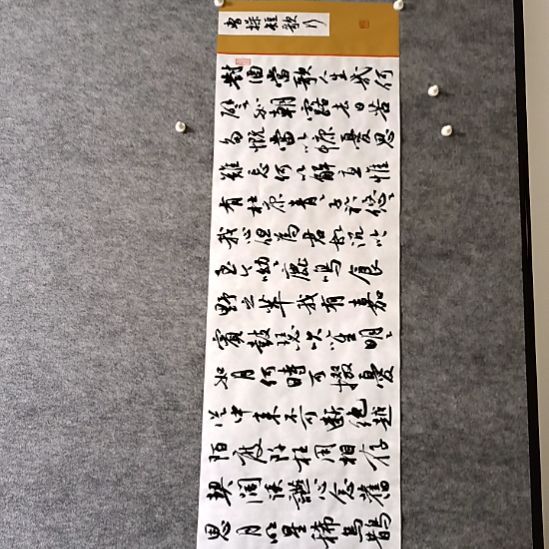 曹操短歌行
對酒當歌人生幾何
譬如朝露去日苦
多慨當以慷憂思
難忘何以解憂惟
有杜康青青子衿悠悠
我心但為君故沉吟
至今呦呦鹿鳴食
野之苹我有嘉
賓鼓瑟吹笙明明
如月何時可掇憂
從中來不可斷絕越
陌度阡枉用相存
契闊談讌心念舊
恩月明星稀烏鵲